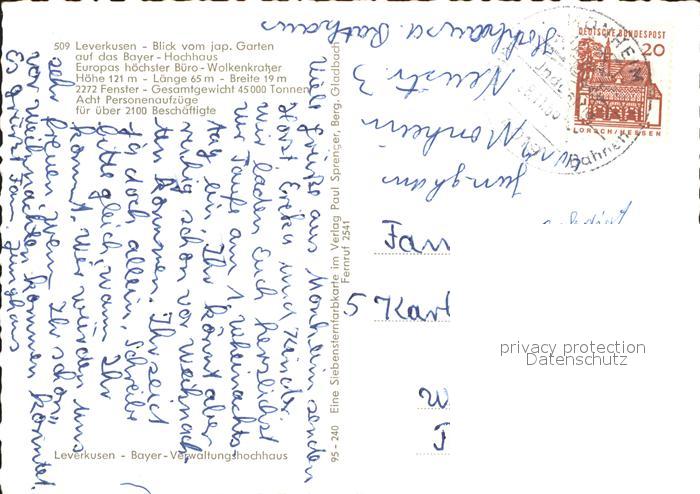 509 Leverkusen - Blick vom jap. Garten
auf das Bayer - Hochhaus
Europas höchster Büro - Wolkenkratzer
Höhe 121 m - Länge 65 m - Breite 19 m
2272 Fenster - Gesamtgewicht 45 000 Tonnen
Acht Personenaufzüge
für über 2100 Beschäftigte
Viele Grüße aus Monheim senden
Horst Erika und Kinder.
Wir laden Euch herzlichst
zur Taufe am 1 Weihnachts-
tag ein. Ihr könnt aber
ruhig schon vor Weihnach.
ten kommen. Ihr seit
ja doch allein. Schreibt
bitte gleich, wann Ihr
kommt. Wir würden uns
sehr freuen, wenn Ihr schon
vor Weihnachten kommen könntet.
Es grüßt
Leverkusen - Bayer-Verwaltungshochhaus
95 - 240 Eine Siebensternfarbkarte im Verlag Paul Sprenger, Berg. Gladbach
Fernruf 2541
Hochhaus a. Rathaus
Neustr. 3
Monheim
Jungham
DEUTSCHE BUNDESPOST
20
LORSCH/HESSEN
Fam
5 Karl
W
privacy protection
Datenschutz